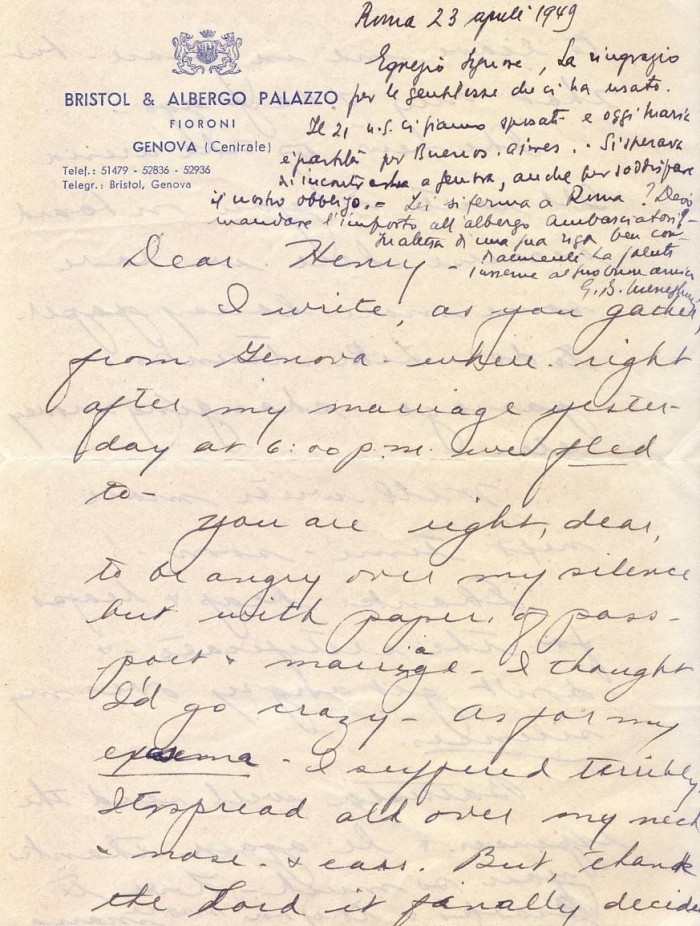 BRISTOL & ALBERGO PALAZZO
FIORONI
GENOVA (Centrale)
Telef.: 51479 - 52836 - 52936
Telegr.: Bristol, Genova
Roma 23 aprile 1949
Egregio Signore, La ringrazio
per le gentilezze che ci ha usato.
Il 21 u.s. ci siamo sposati e oggi Maria
è partita per Buenos-Aires. Si sperava
di incontrarla a Genova, anche per soddisfare
il nostro obbligo. - Lei si ferma a Roma? Devo
mandare l'importo all'albergo Ambasciatori? -
In attesa di una sua riga ben cor-
dialmente La saluto
insieme al suo buon amico
G. B. Meneghini
Dear Henry -
I write, as you gather,
from Genova where right
after my marriage yester-
day at 6:00 p.m. we fled
to -
You are right, dear,
to be angry over my silence
but with paper, of pass-
port & marriage - I thought
I'd go crazy - As for my
exsema - I suffered terribly.
It spread all over my neck
& nose. & ears. But, thank
the Lord it finally decide